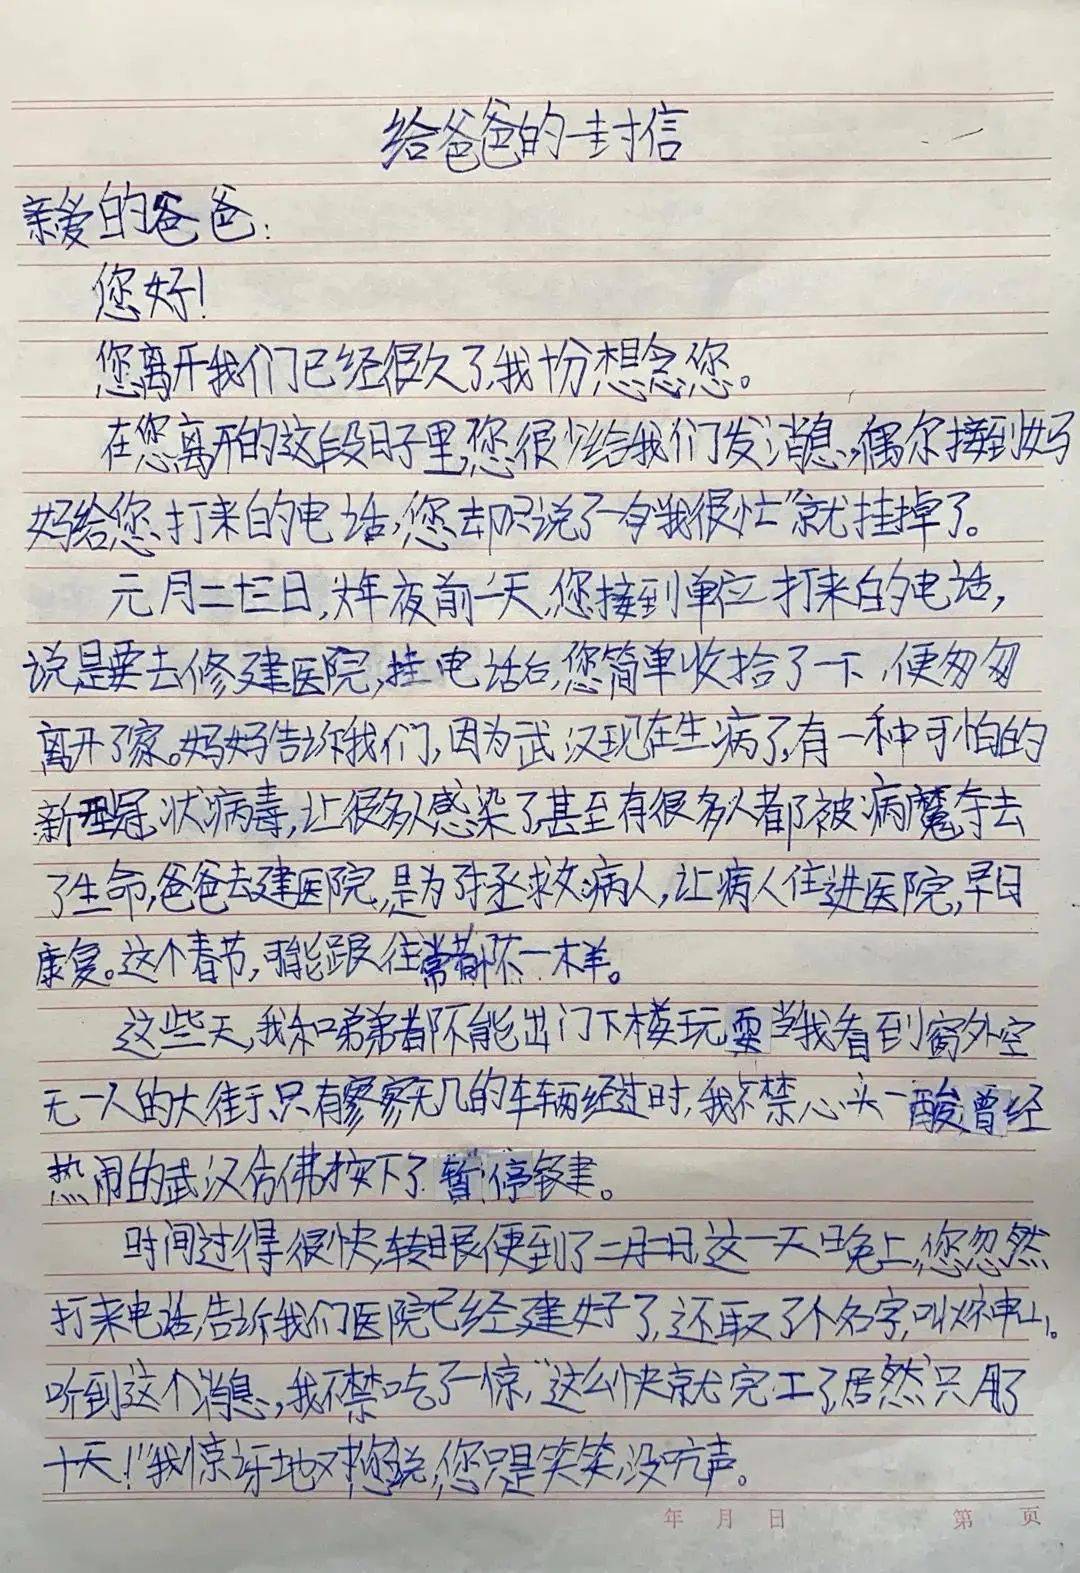 给爸爸的一封信
亲爱的爸爸:
您好!
您离开我们已经很久了,我十分想念您。
在您离开的这段日子里,您很少给我们发消息,偶尔接到妈
妈给您打来的电话,您却只说了一句"我很忙"就挂掉了。
元月二十三日,大年夜前一天,您接到单位打来的电话,
说是要去修建医院,挂电话后,您简单收拾了一下,便匆匆
离开了家。妈妈告诉我们,因为武汉现在生病了,有一种可怕的
新型冠状病毒,让很多人感染了,甚至有很多人都被病魔夺去
了生命,爸爸去建医院,是为了拯救病人,让病人住进医院,早日
康复。这个春节,可能跟往常都不一样。
这些天,我和弟弟都不能出门下楼玩耍,当我看到窗外空
无一人的大街,只有寥寥无几的车辆经过时,我不禁心头一酸,曾经
热闹的武汉仿佛按下了暂停键。
时间过得很快,转眼便到了二月二日,这一天晚上,您忽然
打来电话,告诉我们医院已经建好了,还取了个名字,叫火神山。
听到这个消息,我不禁吃了一惊,"这么快就完工了,居然只用了
十天!"我惊讶地对您说,您只是笑笑,没吭声。
年 月 日 第 页